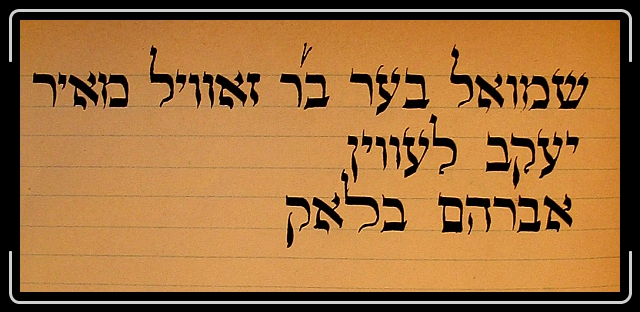 שמואל בער בר׳ זאוויל מאיר
יעקב לעווין
אברהם בלאק